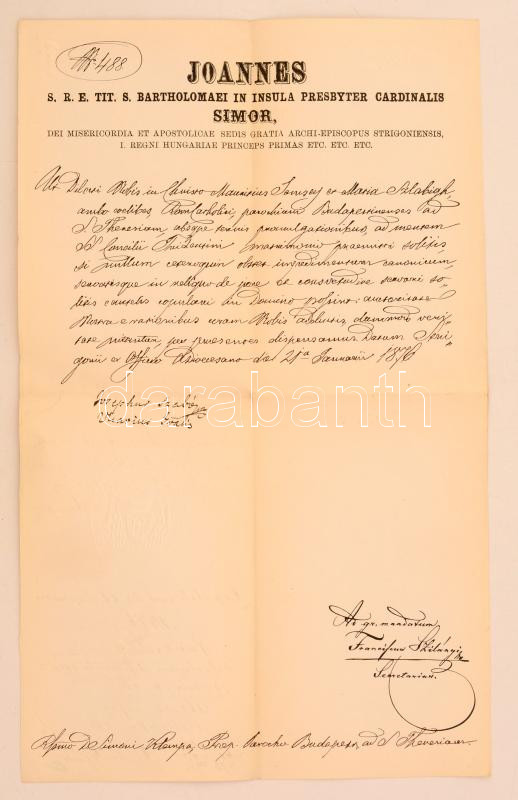 Nr. 488
JOANNES
S. R. E. TIT. S. BARTHOLOMAEI IN INSULA PRESBYTER CARDINALIS
SIMOR,
DEI MISERICORDIA ET APOSTOLICAE SEDIS GRATIA ARCHI-EPISCOPUS STRIGONIENSIS,
I. REGNI HUNGARIAE PRINCEPS PRIMAS ETC. ETC. ETC.
Ut Dilecti Nobis in Christo Mauritius et Maria
ambo coelibes Rom Catholici, parochiani Budapestinenses ad
S Theresiam absque trinis promulgationibus, ad mentem
S. Concilii Tridentini matrimonio praemitti solitis
si nullum ceteroquin obstet impedimentum canonicum
servatisque in reliquo de jure et consvetudine servari so-
litis cautelis copulari in Domino possint: autoritate
Nostra e rationibus coram Nobis adductis, dummodo veri-
tate nitantur, per praesentes dispensamus. Datum Stri-
gonii ex Officio Dioecesano die 21a Januarii 1876
Josephus Szabó
Vicarius
darabanth
Ad gr. mandatum
Franciscus
Secretarius.
Rssmo D Simoni Klempa, Parocho Budapest, ad S Theresiam.